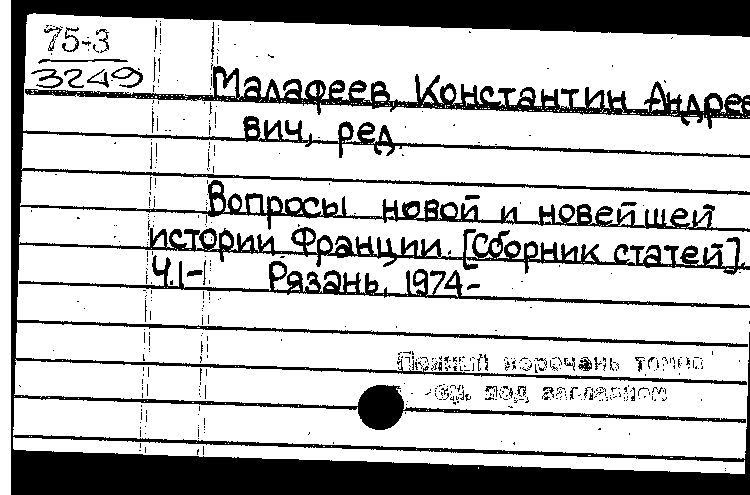 75-3
3249
Малафеев, Константин Андрее
вич, ред.
Вопросы новой и новейшей
истории Франции. [Сборник статей].
Ч.1- Рязань, 1974-
Полный перечень томов
см. под заглавием